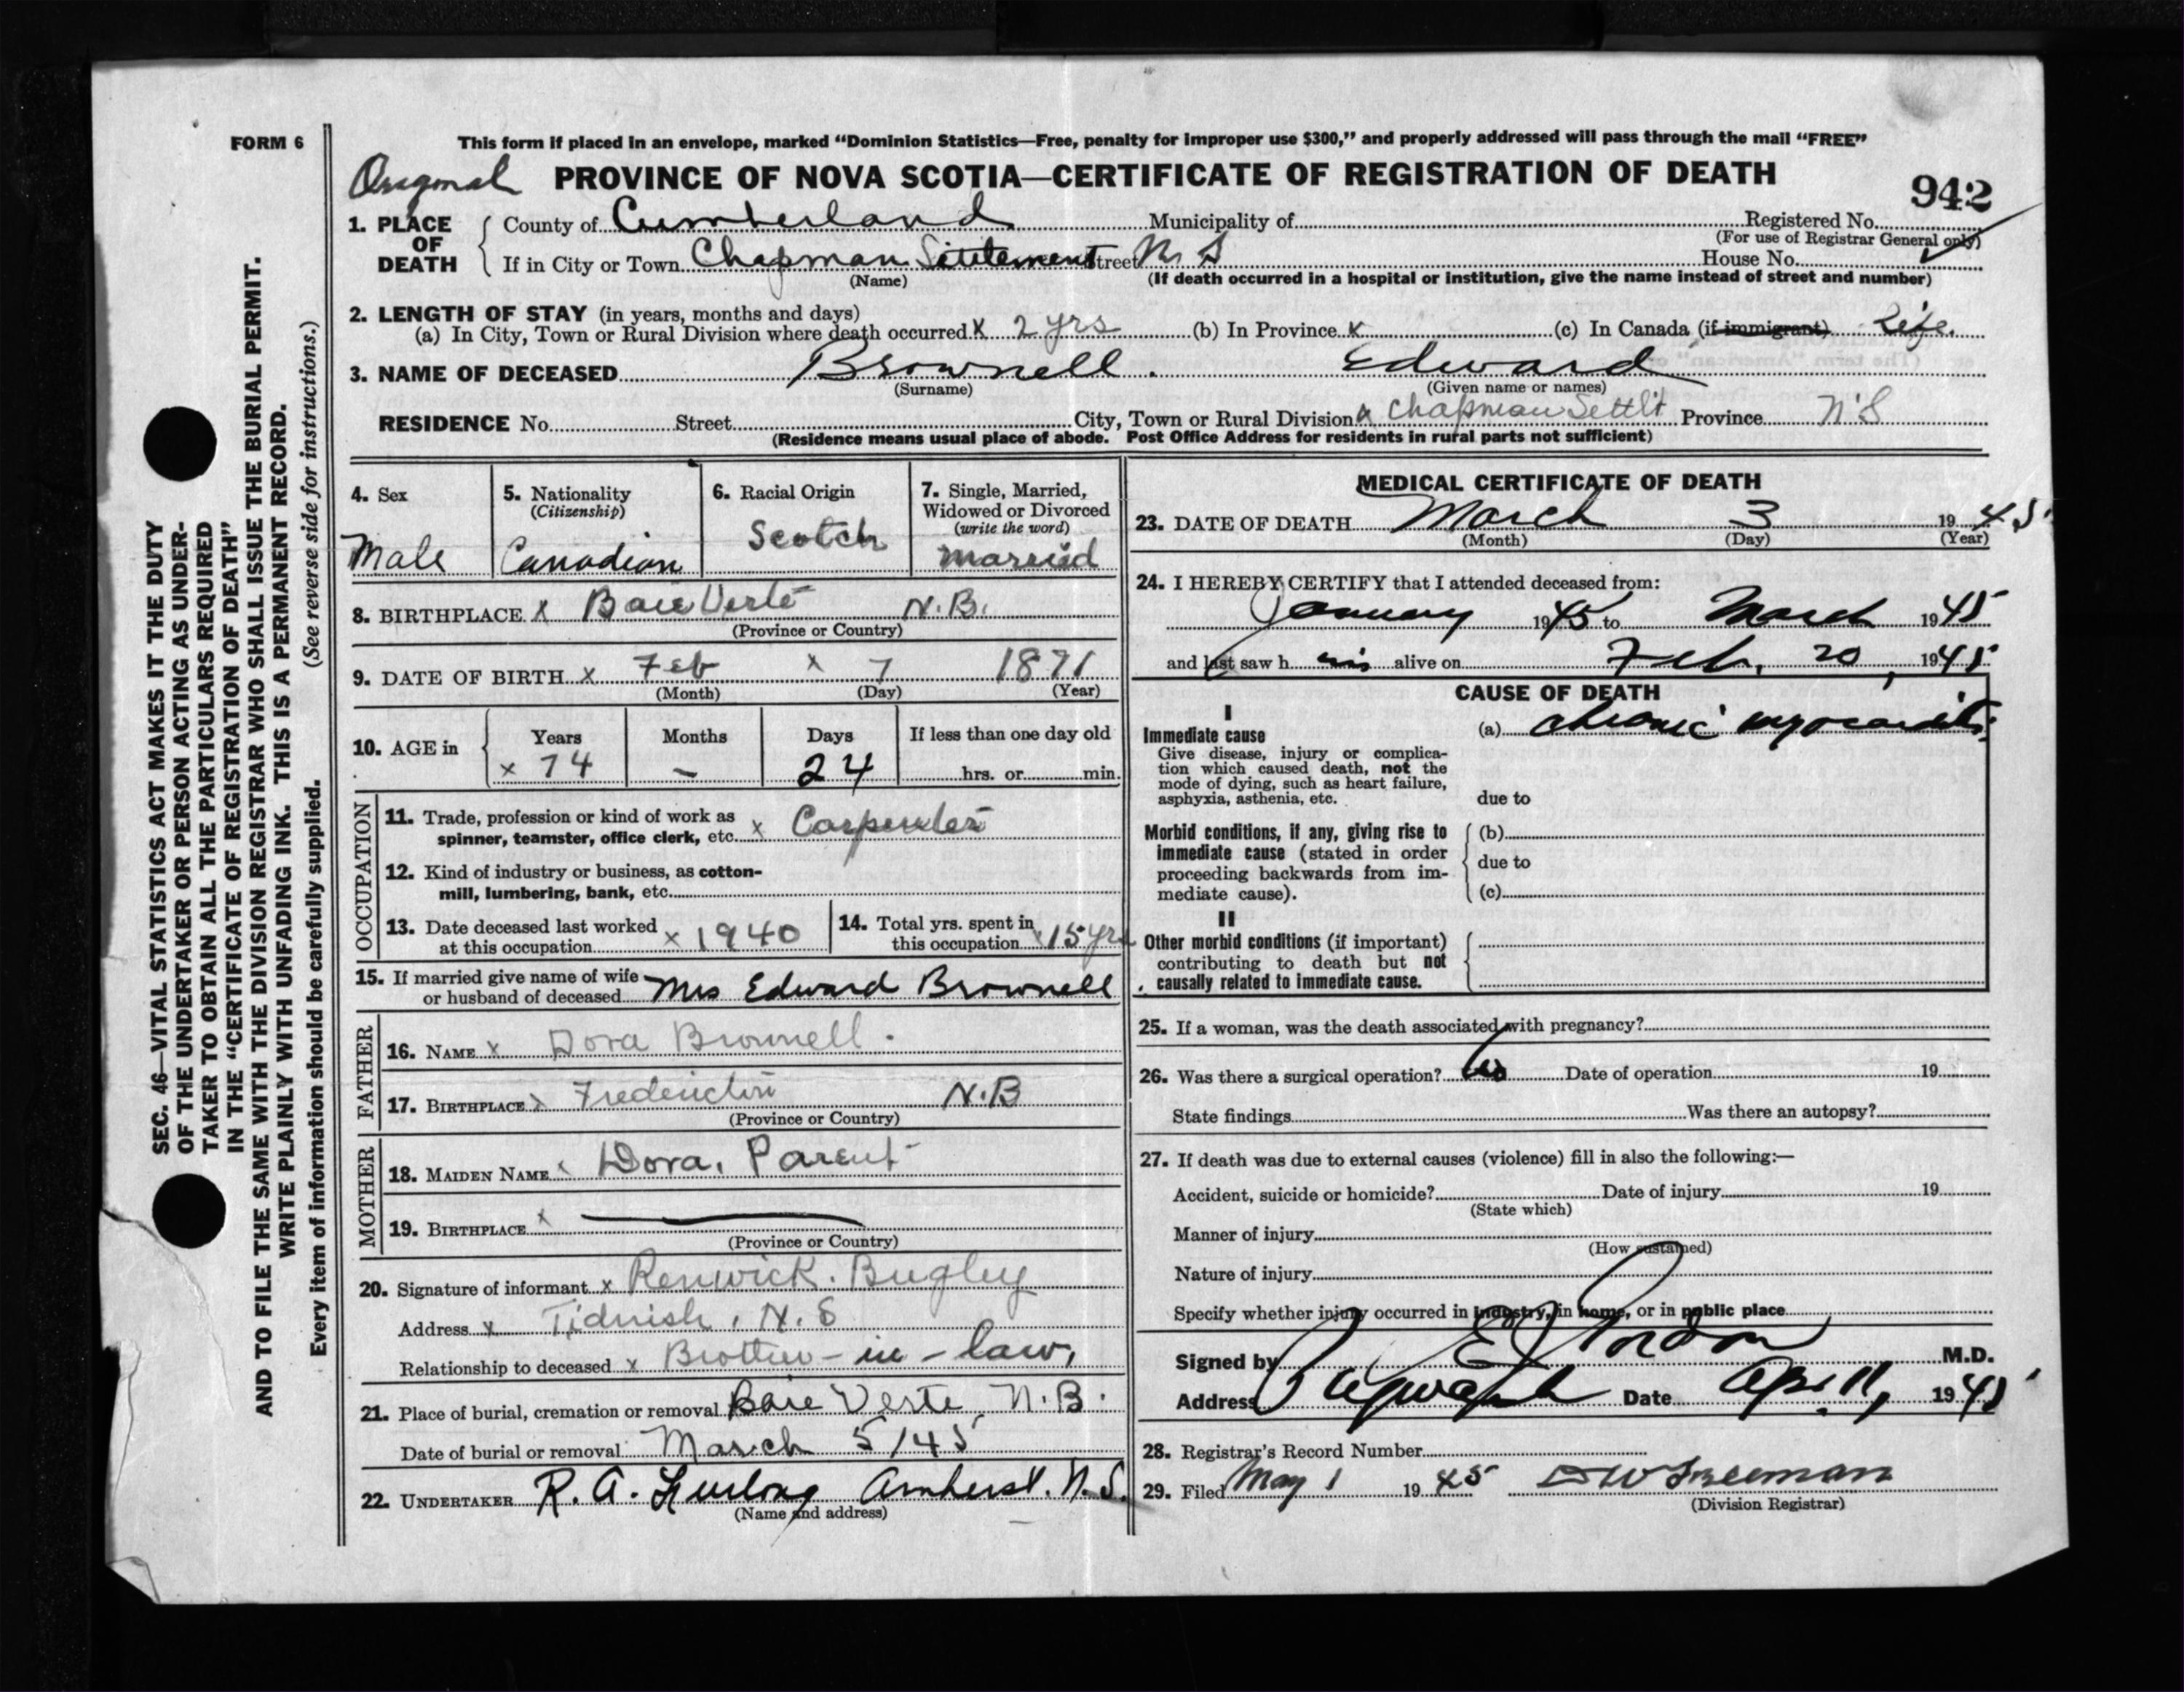 FORM 6
This form if placed in an envelope, marked "Dominion Statistics—Free, penalty for improper use $300," and properly addressed will pass through the mail "FREE"
Original PROVINCE OF NOVA SCOTIA—CERTIFICATE OF REGISTRATION OF DEATH
942
1. PLACE OF DEATH County of Cumberland Municipality of Registered No.
(For use of Registrar General only)
If in City or Town Chapman Settlement Street N S House No.
(Name) (If death occurred in a hospital or institution, give the name instead of street and number)
2. LENGTH OF STAY (in years, months and days)
(a) In City, Town or Rural Division where death occurred x 2 yrs (b) In Province x (c) In Canada (if immigrant) Life.
3. NAME OF DECEASED Brownell. Edward
(Surname) (Given name or names)
RESIDENCE No. Street City, Town or Rural Division x Chapman Settl't Province N.S
(Residence means usual place of abode. Post Office Address for residents in rural parts not sufficient)
SEC. 46—VITAL STATISTICS ACT MAKES IT THE DUTY
OF THE UNDERTAKER OR PERSON ACTING AS UNDER-
TAKER TO OBTAIN ALL THE PARTICULARS REQUIRED
IN THE "CERTIFICATE OF REGISTRATION OF DEATH"
AND TO FILE THE SAME WITH THE DIVISION REGISTRAR WHO SHALL ISSUE THE BURIAL PERMIT.
WRITE PLAINLY WITH UNFADING INK. THIS IS A PERMANENT RECORD.
Every item of information should be carefully supplied. (See reverse side for instructions.)
4. Sex Male
5. Nationality (Citizenship) Canadian
6. Racial Origin Scotch
7. Single, Married, Widowed or Divorced (write the word) married
8. BIRTHPLACE x Baie Verte N.B.
(Province or Country)
9. DATE OF BIRTH x Feb x 7 1871
(Month) (Day) (Year)
10. AGE in Years x 74 Months - Days 24 If less than one day old hrs. or min.
OCCUPATION
11. Trade, profession or kind of work as
spinner, teamster, office clerk, etc. x Carpenter
12. Kind of industry or business, as cotton-
mill, lumbering, bank, etc.
13. Date deceased last worked
at this occupation x 1940
14. Total yrs. spent in
this occupation x 15 yrs
15. If married give name of wife
or husband of deceased Mrs Edward Brownell
FATHER
16. NAME x Dora Brownell.
17. BIRTHPLACE x Fredericton N.B
(Province or Country)
MOTHER
18. MAIDEN NAME x Dora, Parent
19. BIRTHPLACE x
(Province or Country)
20. Signature of informant x Renwick. Bugley
Address x Tidnish, N.S
Relationship to deceased x Brother-in-law,
21. Place of burial, cremation or removal Baie Verte, N.B.
Date of burial or removal March 5/45
22. UNDERTAKER R. A. Furlong Amherst. N.S.
(Name and address)
MEDICAL CERTIFICATE OF DEATH
23. DATE OF DEATH March 3 1945
(Month) (Day) (Year)
24. I HEREBY CERTIFY that I attended deceased from:
January 1945 to March 1945
and last saw h im alive on Feb. 20, 1945
CAUSE OF DEATH
I
Immediate cause
Give disease, injury or complica-
tion which caused death, not the
mode of dying, such as heart failure,
asphyxia, asthenia, etc.
(a) chronic myocarditis
due to
Morbid conditions, if any, giving rise to
immediate cause (stated in order
proceeding backwards from im-
mediate cause).
(b)
due to
(c)
II
Other morbid conditions (if important)
contributing to death but not
causally related to immediate cause.
25. If a woman, was the death associated with pregnancy?
26. Was there a surgical operation? Date of operation 19
State findings Was there an autopsy?
27. If death was due to external causes (violence) fill in also the following:—
Accident, suicide or homicide? Date of injury 19
(State which)
Manner of injury
(How sustained)
Nature of injury
Specify whether injury occurred in industry, in home, or in public place
Signed by Gordon M.D.
Address Pugwash Date Apr. 11, 1945
28. Registrar's Record Number
29. Filed May 1 1945 D W Freeman
(Division Registrar)